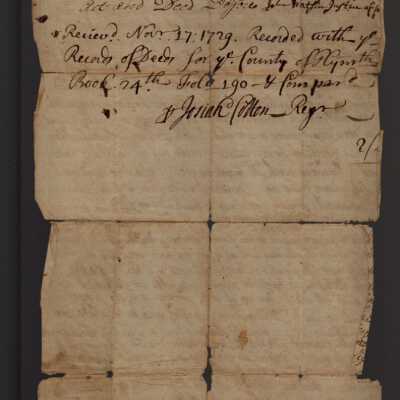 Act and Deed Before John Justice of
Reciev'd. Nov.r 17: 1729. Recorded with ye
Records of Deeds for ye. County of Plymth
Book. 24th Folo 190 - & Compard
pr Josiah Cotton Regr
2/